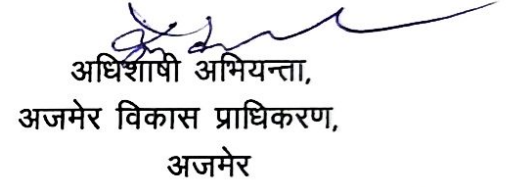 अधिशाषी अभियन्ता,
अजमेर विकास प्राधिकरण,
अजमेर